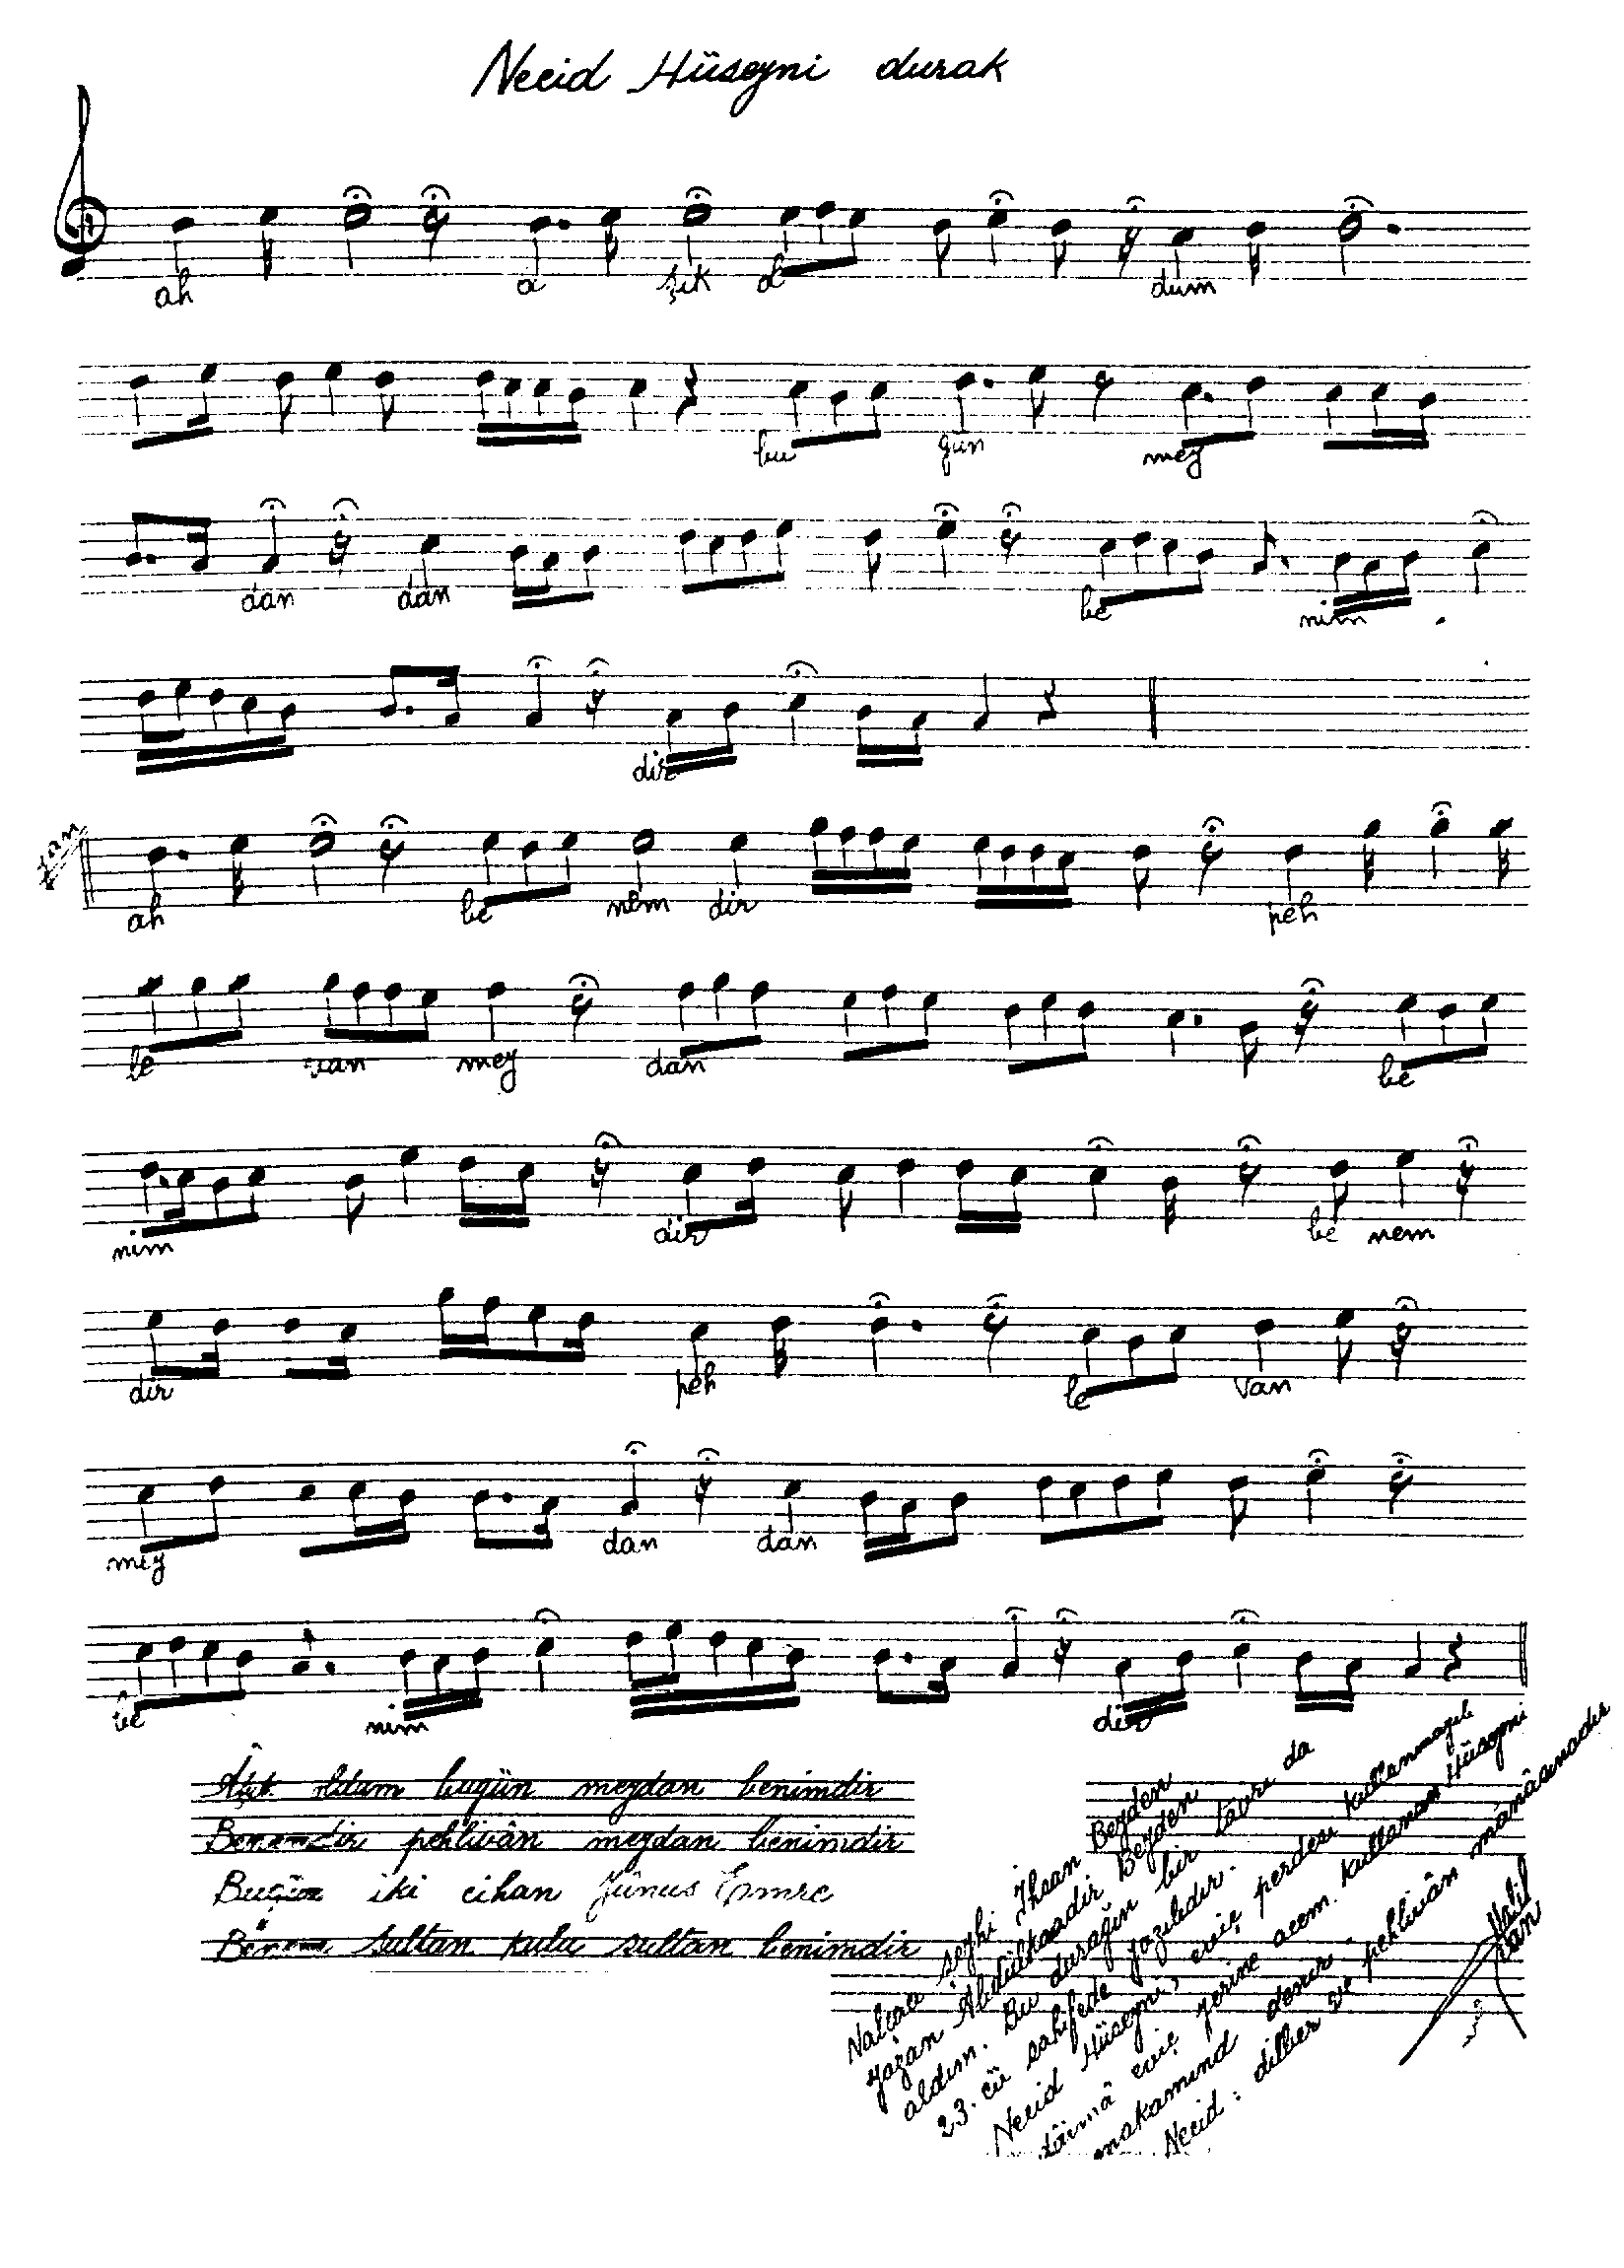 Necid Hüseyni durak
ah a şık ol dum
bu gün mey
dan dan be nim
dir
ah be nem dir peh
le van mey dan be
nim dir be nem
dir peh le van
mey dan dan
be nim dir
Âşık oldum bugün meydan benimdir
Benemdir pehlivân meydan benimdir
Bugün iki cihan Yûnus Emre
Benem sultan kulu sultan benimdir
Nalcacı şeyhi İhsan Beyden
yazan Abdülkaadir Beyden
aldım. Bu durağın bir tavrı da
23. cü sahifede yazılıdır.
Necid Hüseyni, eviç perdesi kullanmayıb
dâimâ eviç yerine acem kullanan Hüseyni
makamına denir.
Necid: dilber ve pehlivân mânâsınadır
Halil
Can